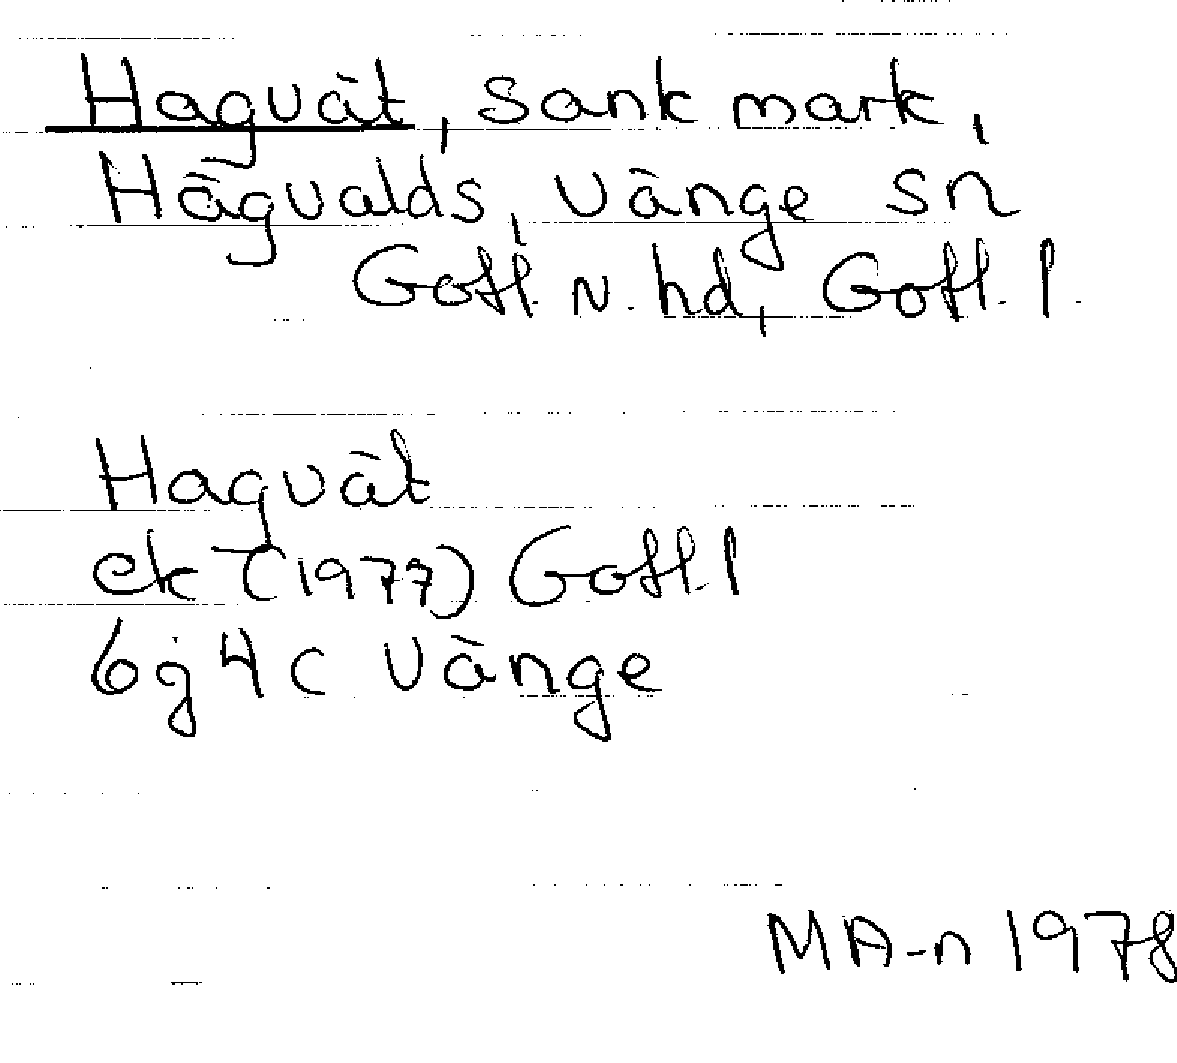 Hagvät, sank mark,
Hägvalds, Vänge sn
Gotl. n. hd, Gotl. l.
Hagvät
ek (1977) Gotl. l
6j4c Vänge
MA-n 1978